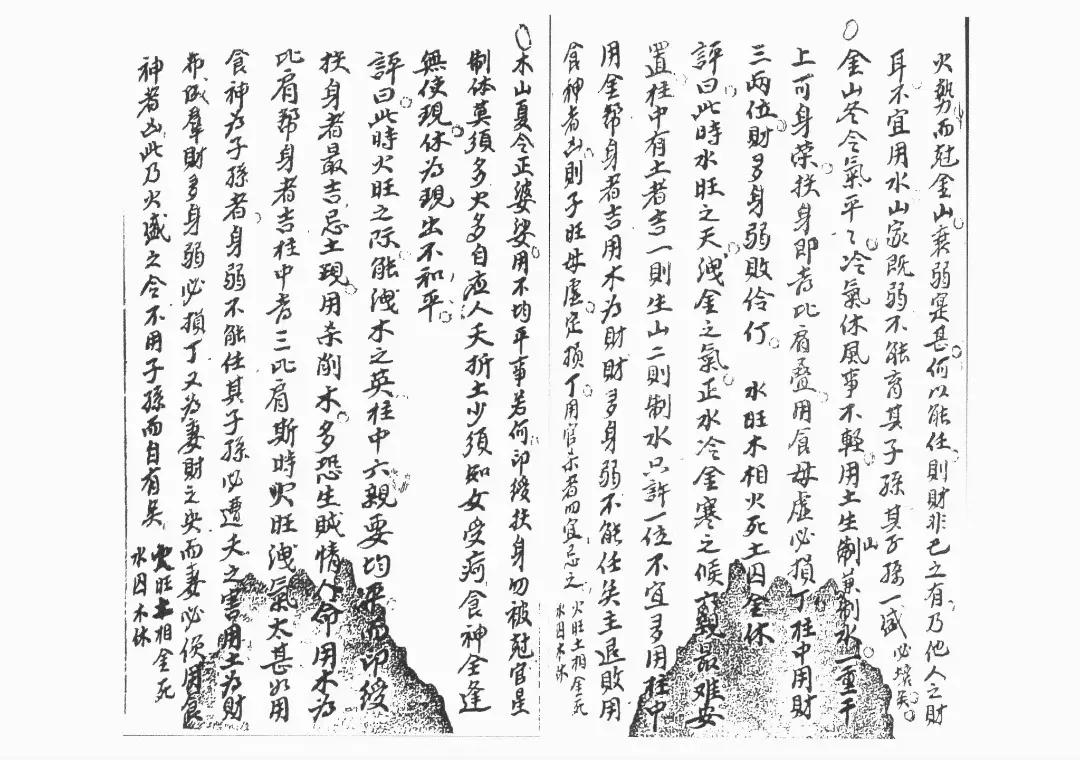 火勢而尅金山衰弱寔甚何以能任則財非己之有乃他人之財
耳不宜用水山家既弱不能育其子孫其子孫一盛必
金山冬令氣平々冷氣休風事不輕用土生山制水一重干
上可身榮扶身即者比肩叠用食母虛必損丁柱中用財
三兩位財多身弱敗伶仃 水旺木相火死土囚金休
評曰此時水旺之天洩金之氣正水冷金寒之候最难安
置柱中有土者吉一則生山二則制水只許一位不宜多用柱中
用金幫身者吉用木为財財多身弱不能任矣主退敗用
食神者凶則子旺母虛定損丁用官杀者四宜忌之 火旺土相金死
水囚木休
木山夏令正婆娑用不均平事若何印綬扶身勿被尅官星
制体莫須多火多自焦人夭折土少須知女受疴食神全逢
無使現休为現出不和平
評曰此時火旺之际能洩木之英柱中六親要均平而印綬
扶身者最吉忌土現用杀削木多恐生賊情人命用木为
比肩幫身者吉柱中者三比肩斯時火旺洩氣太甚如用
食神为子孫者身弱不能任其子孫必遭夭之害用土为財
若成羣財多身弱必損丁又为妻財之央而妻必使用食
神者凶此乃火盛之令不用子孫而自有矣 火旺土相金死
水囚木休